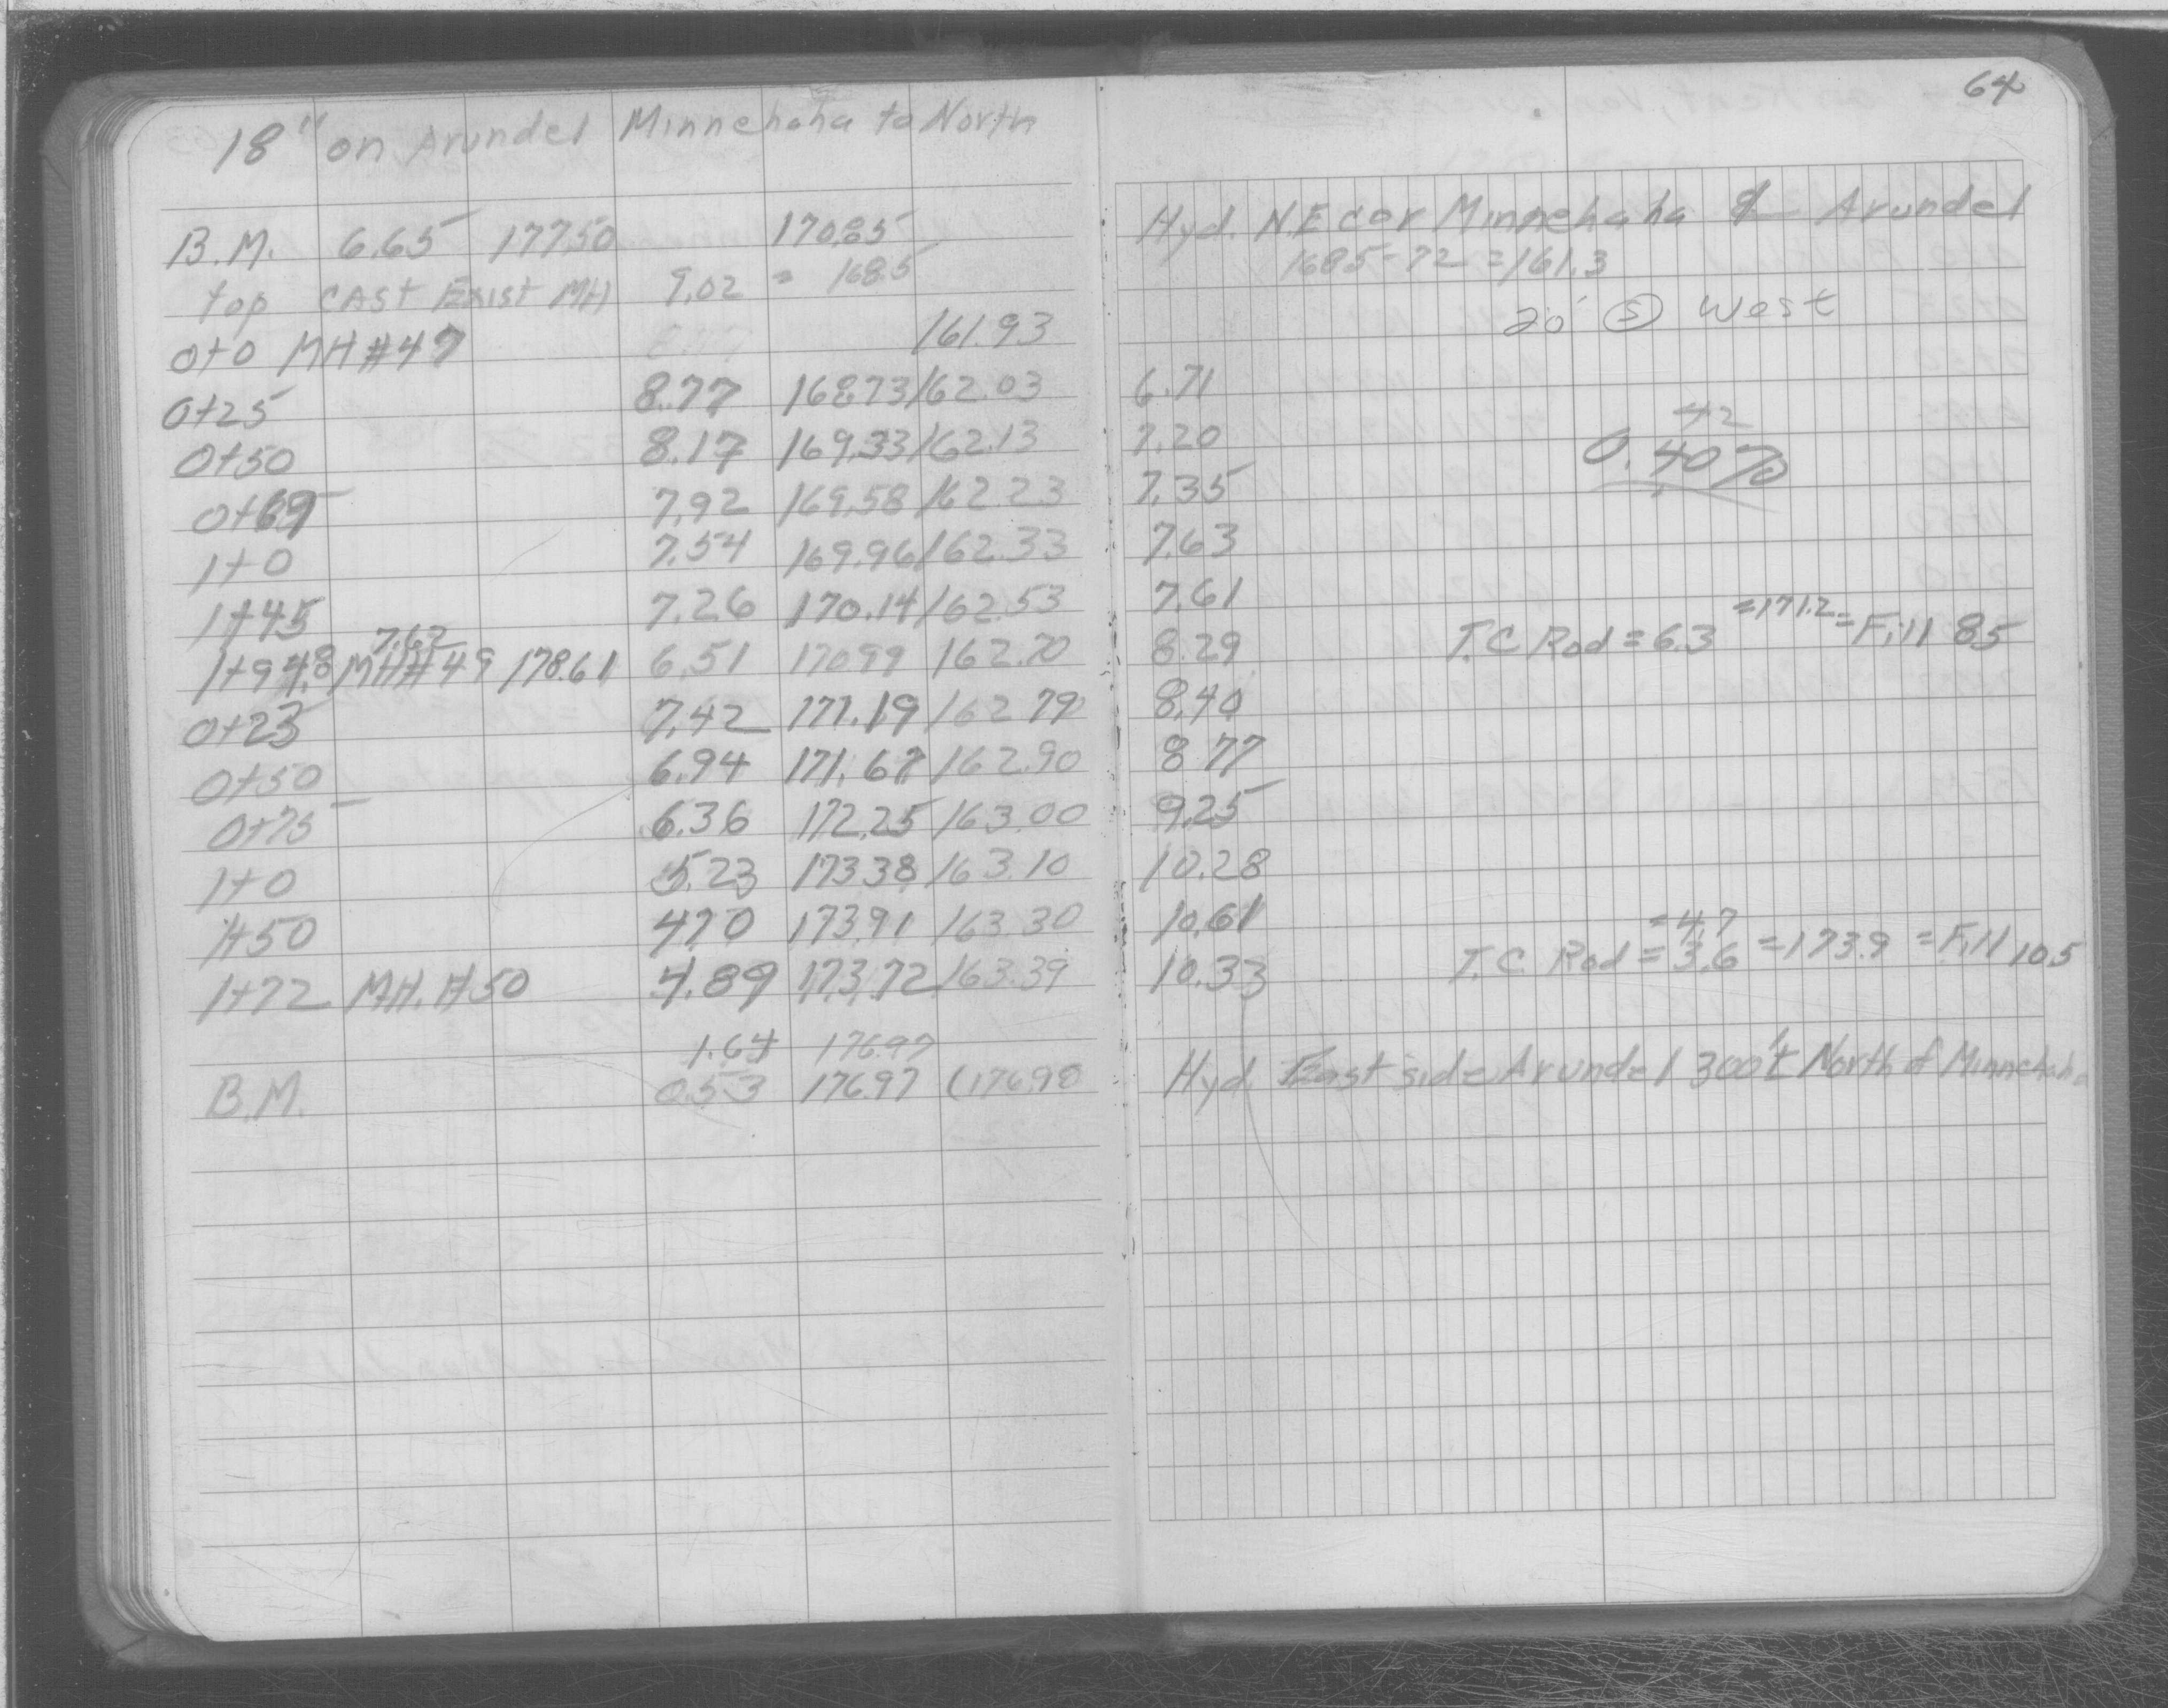 64
18" on Arundel Minnehaha to North
B.M. 6.65 177.50 170.85 Hyd. N.E cor Minnehaha & Arundel
top CAst Exist MH 9.02 = 168.5 168.5-7.2 = 161.3
20' (S) West
0+0 MH #47 161.93
0+25 8.77 168.73 162.03 6.71
0+50 8.17 169.33 162.13 7.20
42
0.40%
0+69 7.92 169.58 162.23 7.35
1+0 7.54 169.96 162.33 7.63
1+45 7.26 170.14 162.53 7.61
7.62
1+94.8 MH#49 178.61 6.51 170.99 162.70 8.29 T.C Rod = 6.3 =171.2 = Fill 8.5
0+23 7.42 171.19 162.79 8.40
0+50 6.94 171.67 162.90 8.77
0+75 6.36 172.25 163.00 9.25
1+0 5.23 173.38 163.10 10.28
1+50 4.70 173.91 163.30 10.61
=4.7
1+72 MH. #50 4.89 173.72 163.39 10.33 T.C. Rod = 3.6 =173.9 = Fill 10.5
1.64 176.97
B.M. 0.53 176.97 (176.98 Hyd. East side Arundel 300'± North of Minnehaha